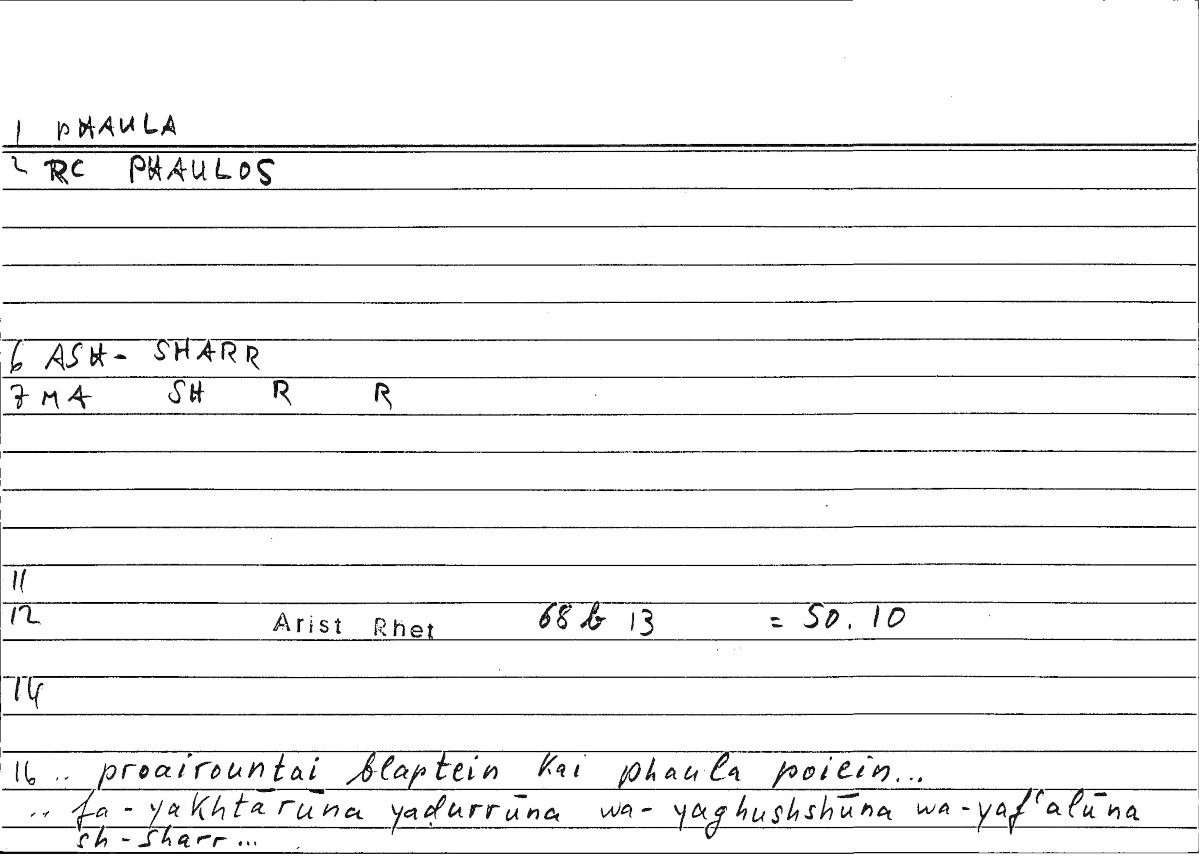 1 PHAULA
2 RC PHAULOS
6 ASH- SHARR
7 MA SH R R
11
12 Arist Rhet 68 b 13 = 50.10
14
16 .. proairountai blaptein kai phaula poiein...
.. fa-yakhtārūna yaḍurrūna wa-yaghushshūna wa-yafʿalūna
sh-sharr...